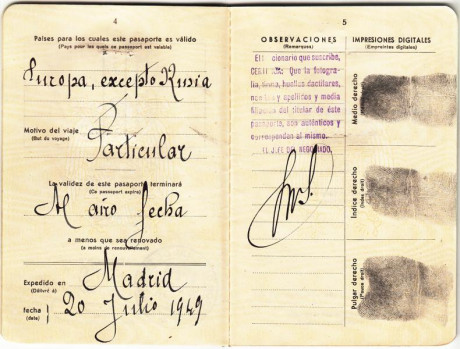 4
Países para los cuales este pasaporte es válido
(Pays pour les quels ce passeport est valable)
Europa, excepto Rusia
Motivo del viaje
(But du voyage)
Particular
La validez de este pasaporte terminará
(Ce passeport expire)
Al año fecha
a menos que sea renovado
(a moins de renouvellement)
Expedido en
(Délivré à)
Madrid
fecha
(date)
20 Julio 1949
5
OBSERVACIONES
(Remarques)
IMPRESIONES DIGITALES
(Empreintes digitales)
El cionario que suscribe,
Que la fotogra-
fía, firma, huellas dactilares,
nombre y apellidos y media
filiación del titular de éste
pasaporte, son auténticos y
corresponden al mismo.
EL JEFE DEL NEGOCIADO.
Medio derecho
Indice derecho
(Index droit)
Pulgar derecho
(Pouce droit)